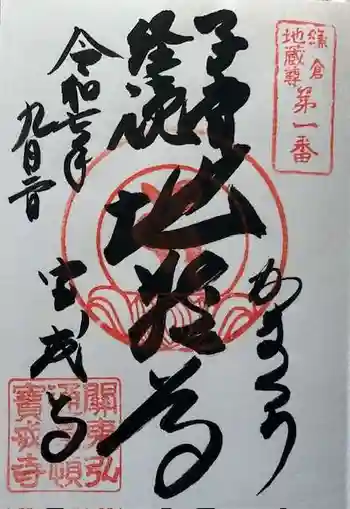 鎌倉
地蔵尊
第一番
かまくら
子育
経読
地蔵尊
令和七年
九月二日
宝戒寺
關東弘
通道頓
寶戒寺